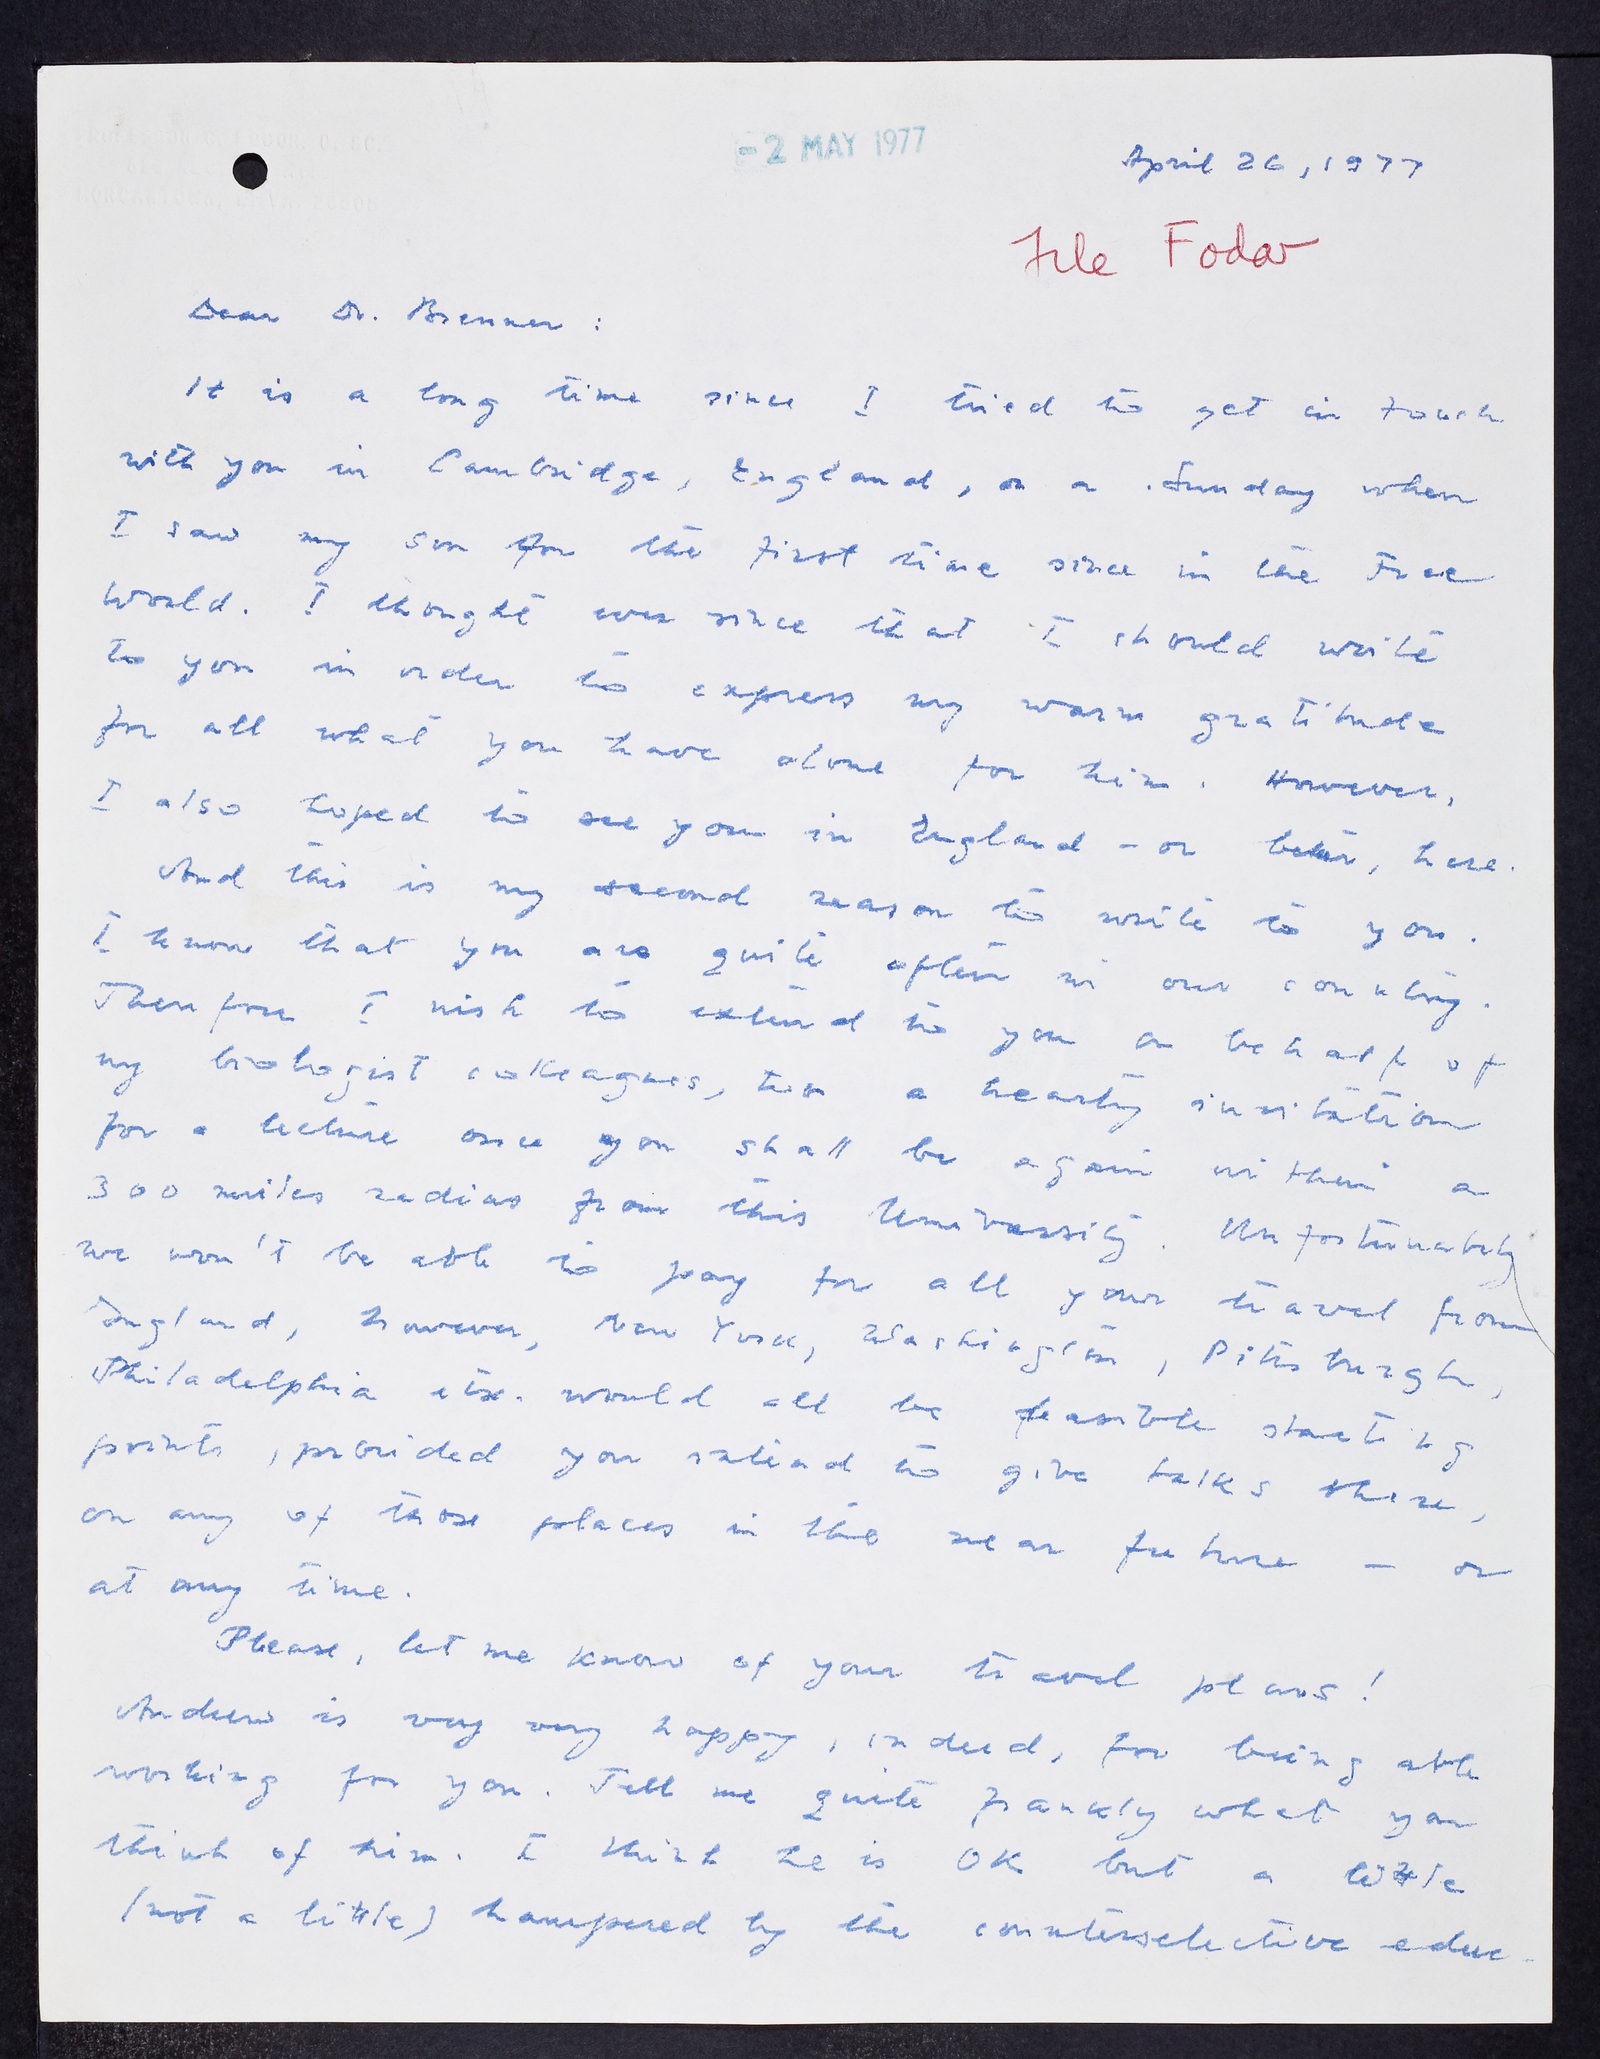 -2 MAY 1977
April 26, 1977
File Fodor
Dear Dr. Brenner:
It is a long time since I tried to get in touch
with you in Cambridge, England, on a Sunday when
I saw my son for the first time since in the Free
World. I thought ever since that I should write
to you in order to express my warm gratitude
for all what you have done for him. However,
I also hoped to see you in England - or better, here.
And this is my second reason to write to you.
I know that you are quite often in our country.
Therefore I wish to extend to you on behalf of
my biologist colleagues, too a hearty invitation
for a lecture once you shall be again within a
300 miles radius from this University. Unfortunately
we won't be able to pay for all your travel from
England, however, New York, Washington, Pittsburgh,
Philadelphia etc. would all be feasible starting
points, provided you intend to give talks there,
on any of those places in the near future - or
at any time.
Please, let me know of your travel plans!
Andrew is very very happy, indeed, for being able
working for you. Tell me quite frankly what you
think of him. I think he is OK but a little
(not a little) hampered by the counterselective educ-